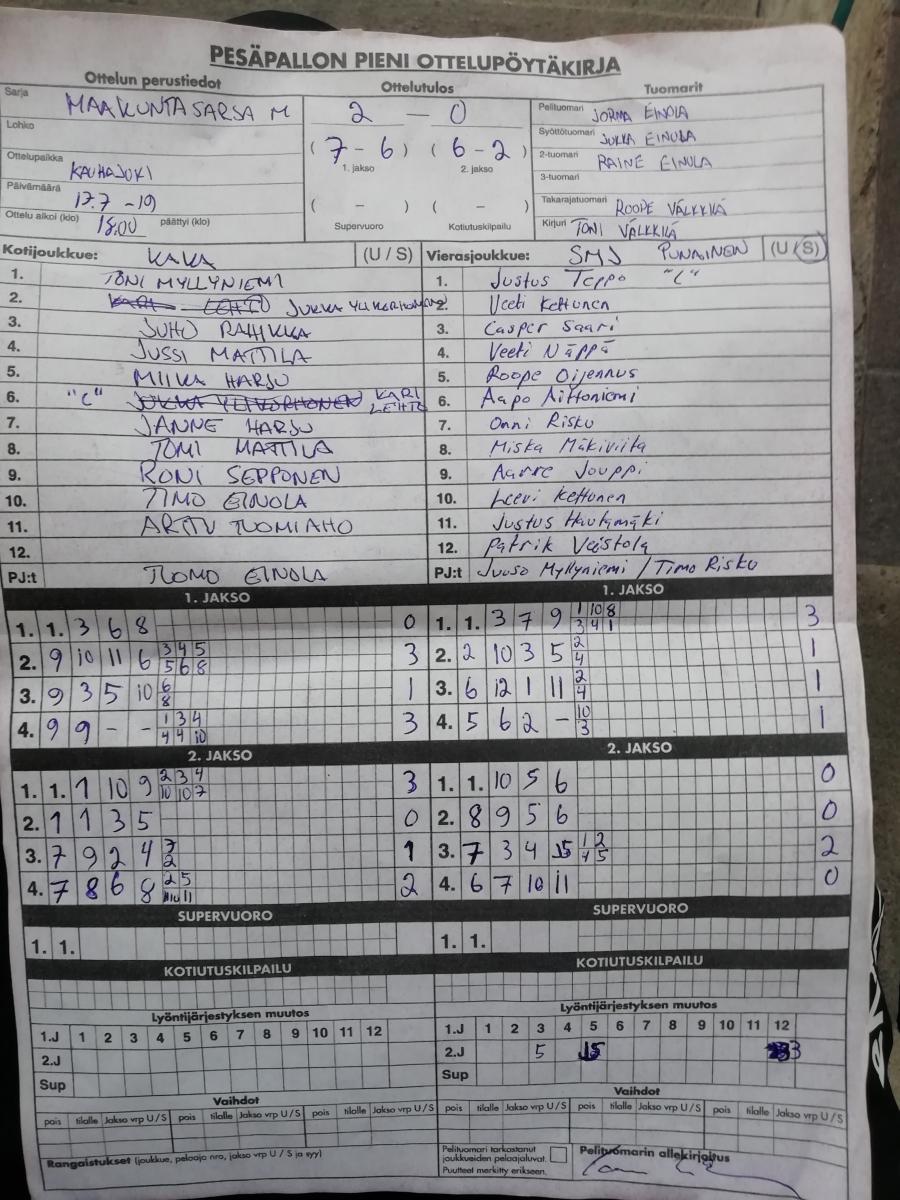 PESÄPALLON PIENI OTTELUPÖYTÄKIRJA
Ottelun perustiedot Ottelutulos Tuomarit
Sarja MAAKUNTASARJA M 2 — 0 Pelituomari JORMA EINOLA
Lohko Syöttötuomari JUKKA EINULA
(7 - 6) (6 - 2) 2-tuomari RAINE EINULA
1. jakso 2. jakso
Ottelupaikka KAUHAJOKI 3-tuomari
Päivämäärä 17.7 -19 ( - ) ( - ) Takarajatuomari ROOPE VÄLKKILÄ
Ottelu alkoi (klo) 18.00 päättyi (klo) Supervuoro Kotiutuskilpailu Kirjuri TONI VÄLKKILÄ
Kotijoukkue: KAKA (U / S) Vierasjoukkue: SMJ PUNAINEN (U / S)
1. TONI MYLLYNIEMI 1. Justus Teppo "C"
2. KARI LEHTO JUKKA YLIKERHONEN 2. Veeti Kettunen
3. JUHO RAHIKKA 3. Casper Saari
4. JUSSI MATTILA 4. Veeti Näppä
5. MIIKA HARJU 5. Roope Oijennus
6. "C" KARI LEHTO 6. Aapo Aittoniemi
7. JANNE HARJU 7. Onni Risku
8. TOMI MATTILA 8. Miska Mäkiviita
9. RONI SEPPONEN 9. Aarre Jouppi
10. TIMO EINOLA 10. Leevi Kettunen
11. ARTTU TUOMIAHO 11. Justus Hautamäki
12. 12. Patrik Veistola
PJ:t TUOMO EINOLA PJ:t Juuso Myllyniemi / Timo Risku
1. JAKSO 1. JAKSO
1. 1. 3 6 8 0 1. 1. 3 7 9 1 10 8 3
3 4 1
2. 9 10 11 6 3 4 5 3 2. 2 10 3 5 2 1
5 6 8 4
3. 9 3 5 10 6 1 3. 6 12 1 11 2 1
8 4
4. 9 9 - - 1 3 4 3 4. 5 6 2 - 10 1
4 4 10 3
2. JAKSO 2. JAKSO
1. 1. 1 10 9 2 3 4 3 1. 1. 10 5 6 0
10 10 7
2. 1 1 3 5 0 2. 8 9 5 6 0
3. 7 9 2 4 7 1 3. 7 3 4 5 1 2 2
2 4 5
4. 7 8 6 8 2 5 2 4. 6 7 10 11 0
10 11
SUPERVUORO SUPERVUORO
1. 1. 1. 1.
KOTIUTUSKILPAILU KOTIUTUSKILPAILU
Lyöntijärjestyksen muutos Lyöntijärjestyksen muutos
1.J 1 2 3 4 5 6 7 8 9 10 11 12 1.J 1 2 3 4 5 6 7 8 9 10 11 12
2.J 2.J 5 3
Sup Sup
Vaihdot Vaihdot
pois tilalle Jakso vrp U / S pois tilalle Jakso vrp U / S pois tilalle Jakso vrp U / S pois tilalle Jakso vrp U / S pois tilalle Jakso vrp U / S pois tilalle Jakso vrp U / S
Rangaistukset (joukkue, pelaaja nro, jakso vrp U / S ja syy) Pelituomari tarkastanut Pelituomarin allekirjoitus
joukkueiden pelaajaluvat.
Puutteet merkitty erikseen.